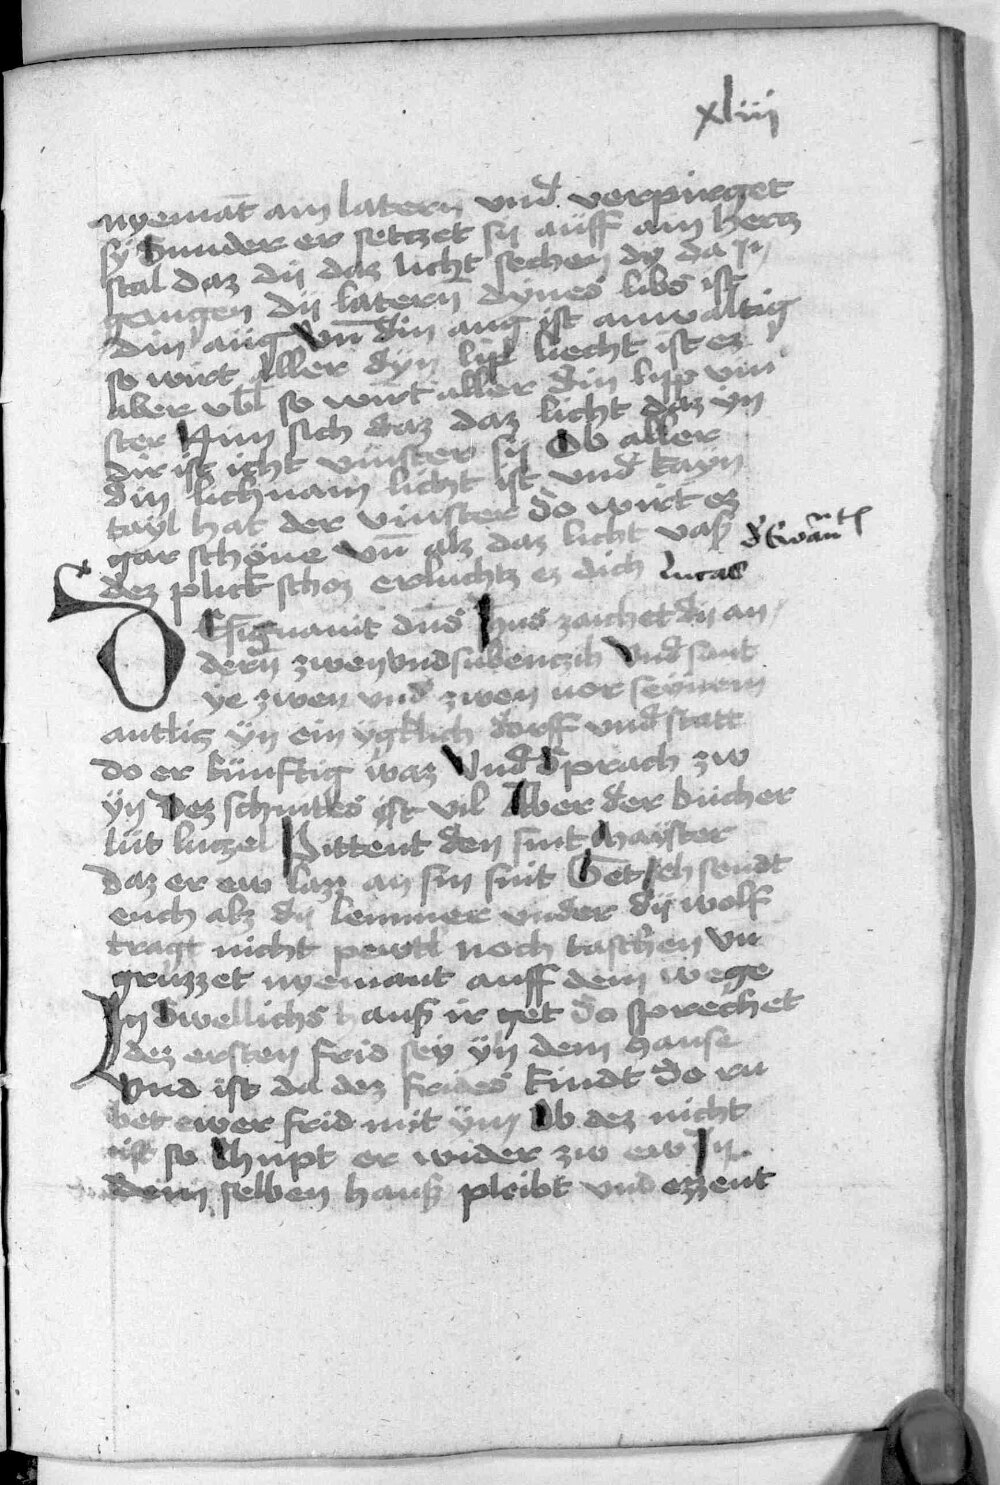 xliij
nyemāt ain latern vnd verpirget
sÿ Sunder er setzet sy aüff ain hertz
stal daz dÿ daz licht sechen dy da jn
gangen dÿ latern dynes libs ist
din aüg Vn̄ din aug ist ainvaltig
so wirt aller dyn lip liecht ist ez
aber vb̄l so wirt aller din lyp vin
ster Nun sich daz daz licht daz yn
dir ist icht vinster sy Ob aller
din lichnam licht ist vnd kayn
tayl hat der vinster do wirt ez
gar schöne Vn̄ alz daz licht vaß
dez plick schoz erluchtz ez dich
lucas
DEsignauit dn̄s Jh̄us zaichet dÿ an
dern̄ zwenvndsubenczih Vnd sant
ye zwen vnd zwen uor seynem
antlig ÿn ein ygtlich dorff vnd statt
do er künftig waz Vnd Sprach zw
ÿn Dez schnittes ist vil Aber der bücher
lüt luczel Pittent den snit Mayster
daz er ew laz an sin snit Get Jch sendt
euch alz dÿ lemmer vnder dÿ wolf
tragt nicht pewtl noch taschen Vn
grüzzet nyemant auff dem wege
Jn Swellichs hauß ir get do sprechet
dez ersten frid sey ÿn dem hause
Vnd ist da dez frides kindt do ru
bet ewer frid mit ÿm Ob dez nicht
ist so Chupt er wider zw ew Jn
dem selben hauß pleibt vnd ezzent